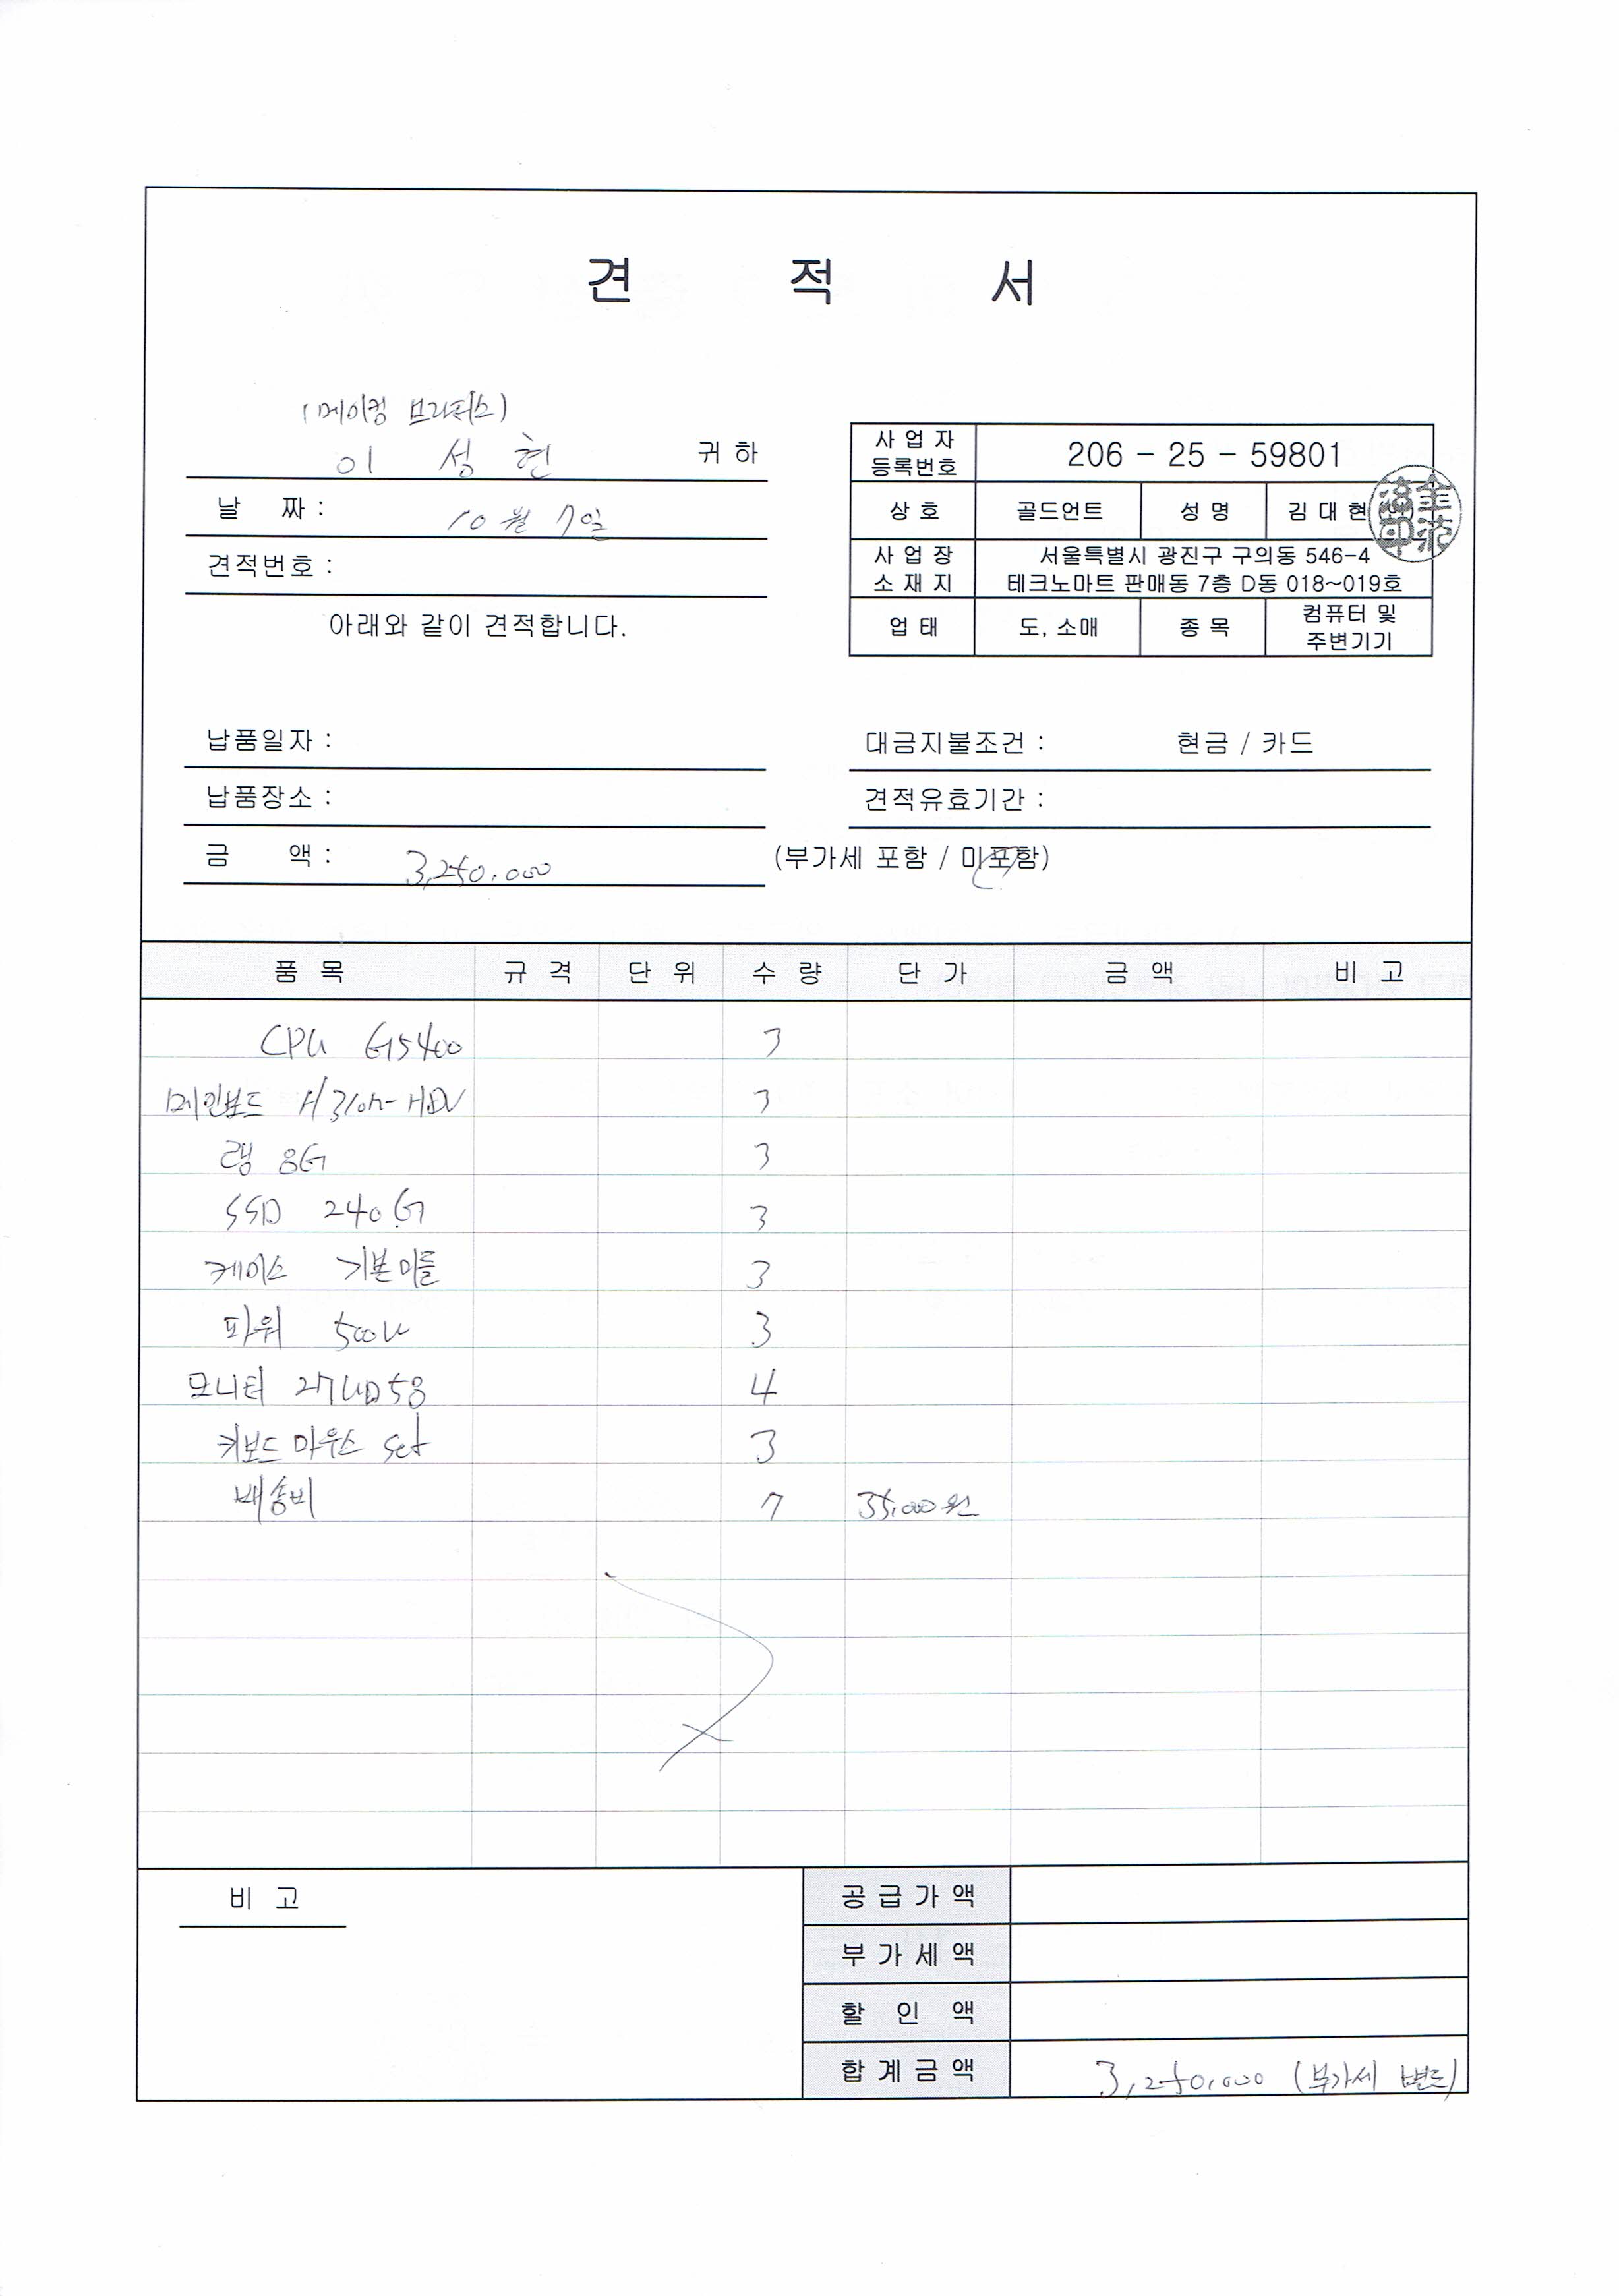 견 적 서
(메이킹 브리피스)
이 성 현 귀 하
날 짜 : 10월 7일
견적번호 :
아래와 같이 견적합니다.
사 업 자 등록번호 206 - 25 - 59801
상 호 골드언트 성 명 김 대 현
사 업 장 소 재 지 서울특별시 광진구 구의동 546-4
테크노마트 판매동 7층 D동 018~019호
업 태 도, 소매 종 목 컴퓨터 및 주변기기
납품일자 : 대금지불조건 : 현금 / 카드
납품장소 : 견적유효기간 :
금 액 : 3,250.000 (부가세 포함 / 미포함)
품 목 규 격 단 위 수 량 단 가 금 액 비 고
CPU G5400 3
메인보드 H310M-HDV 3
램 8G 3
SSD 240G 3
케이스 기본미들 3
파워 500W 3
모니터 27UD58 4
키보드 마우스 set 3
배송비 7 35,000원
비 고
공 급 가 액
부 가 세 액
할 인 액
합 계 금 액 3,250,000 (부가세 별도)